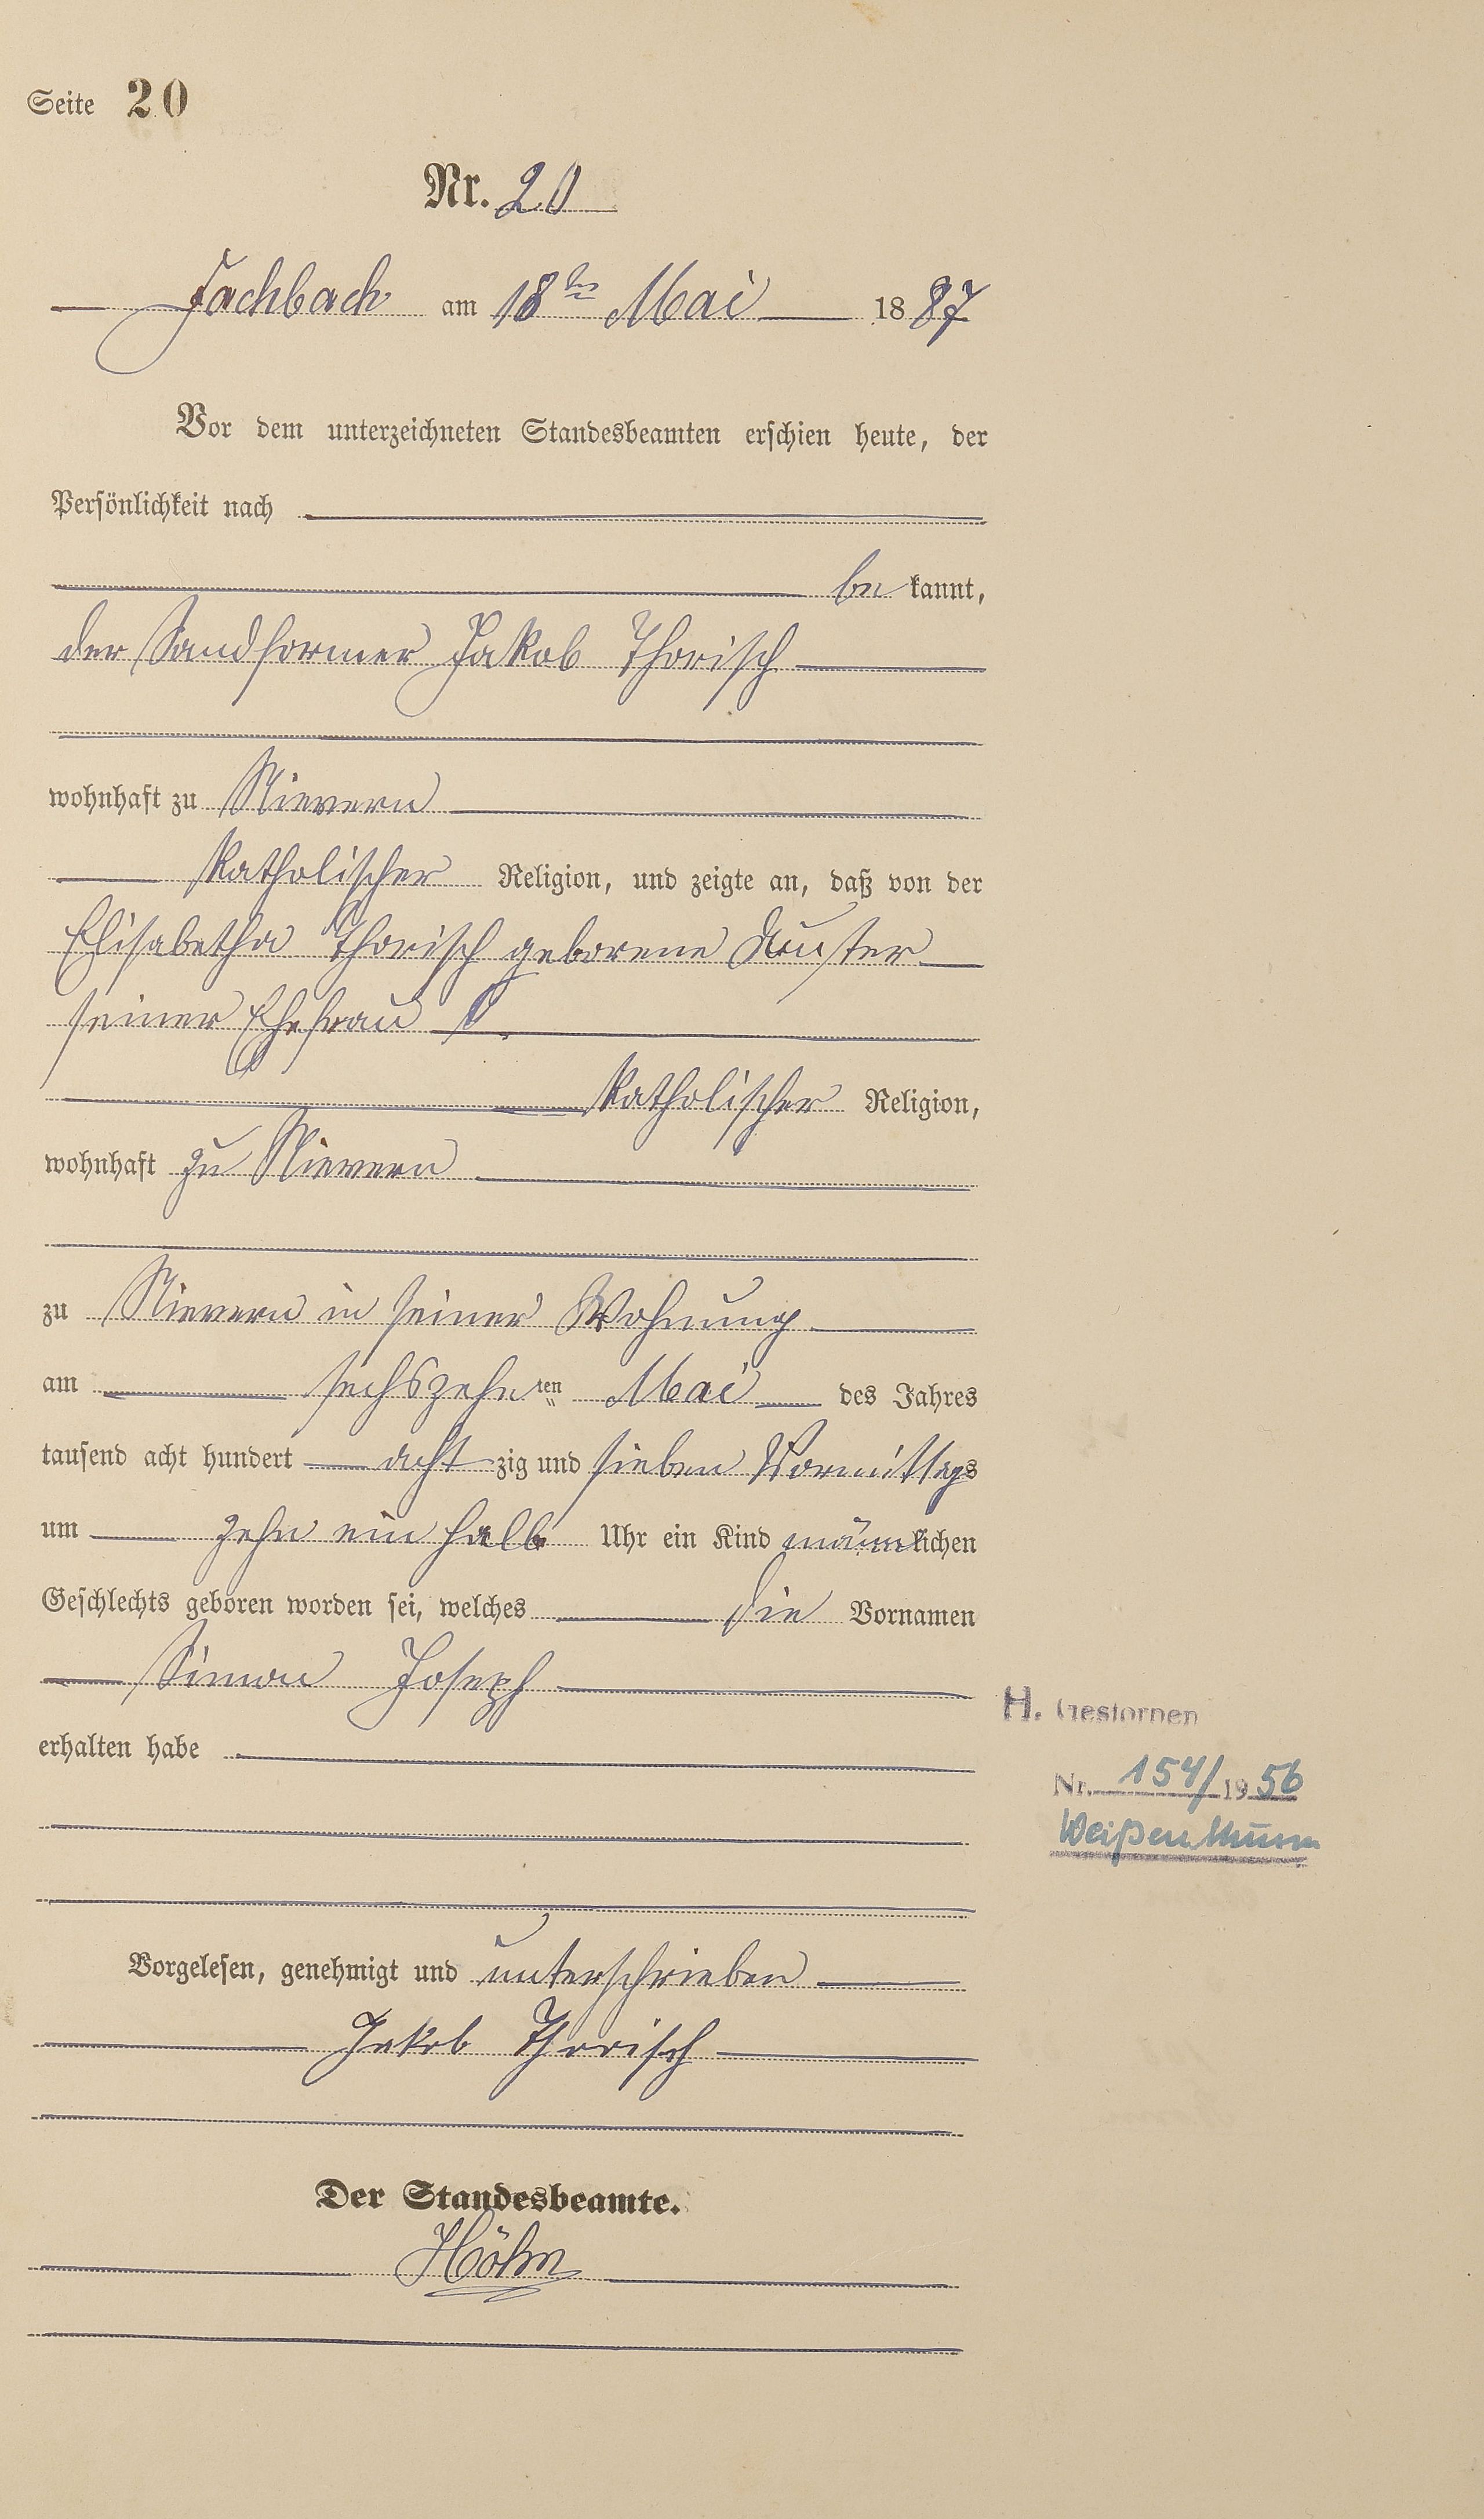 Seite 20
Nr. 20
Fachbach am 18ten Mai 1887
Vor dem unterzeichneten Standesbeamten erschien heute, der
Persönlichkeit nach
be kannt,
der Sandformer Jakob Thorisch
wohnhaft zu Nievern
katholischer Religion, und zeigte an, daß von der
Elisabetha Thorisch geborene
seiner Ehefrau
katholischer Religion,
wohnhaft zu Nievern
zu Nievern in seiner Wohnung
am sechszehnten Mai des Jahres
tausend acht hundert achtzig und sieben Vormittags
um zehn ein halb Uhr ein Kind männlichen
Geschlechts geboren worden sei, welches die Vornamen
Simon Joseph
erhalten habe
H. Gestorben
Nr. 154/1956
Weißenthurm
Vorgelesen, genehmigt und unterschrieben
Jakob Thorisch
Der Standesbeamte.